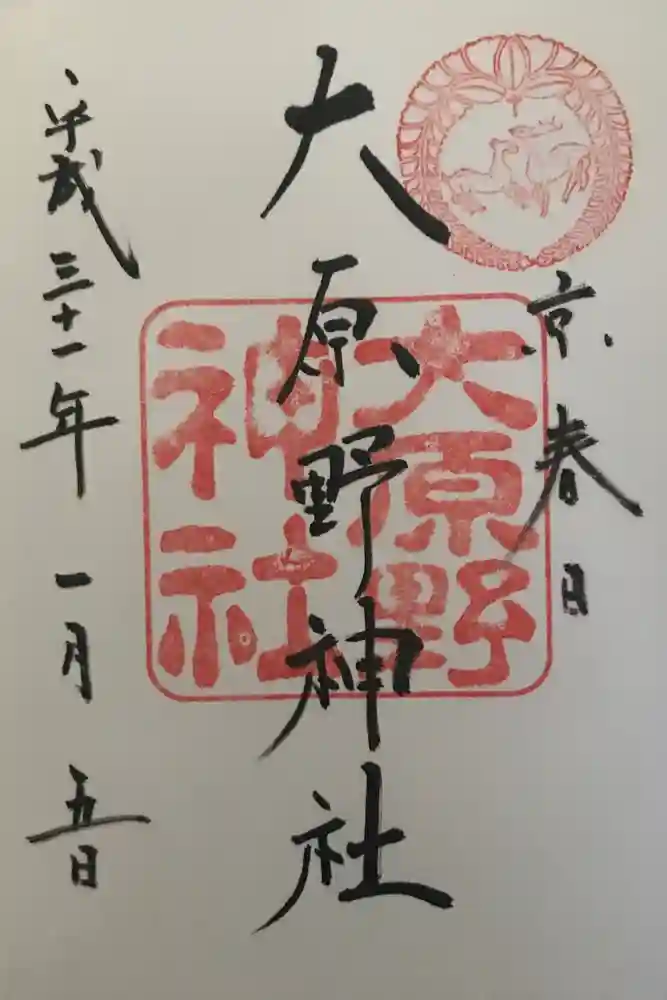 京春日
大原野神社
大原野
神社
平成三十一年一月五日